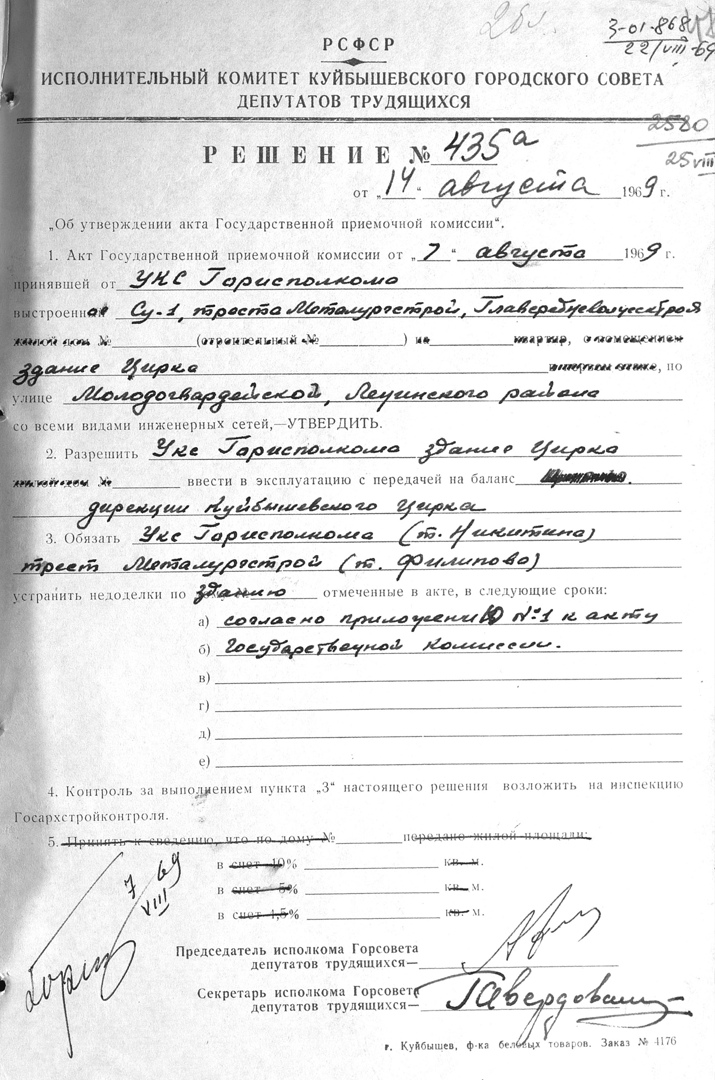 26л.
3-01-868
22/VIII-69
РСФСР
ИСПОЛНИТЕЛЬНЫЙ КОМИТЕТ КУЙБЫШЕВСКОГО ГОРОДСКОГО СОВЕТА
ДЕПУТАТОВ ТРУДЯЩИХСЯ
2580
25 VIII
РЕШЕНИЕ № 435а
от „14" августа 1969 г.
„Об утверждении акта Государственной приемочной комиссии".
1. Акт Государственной приемочной комиссии от „7" августа 1969 г.
принявшей от УКС Горисполкома
выстроенное Су-1, треста Металургстрой,
жилой дом № (строительный № ) на квартир, с помещением
здание Цирка , по
улице Молодогвардейской, Ленинского района
со всеми видами инженерных сетей,—УТВЕРДИТЬ.
2. Разрешить Укс Горисполкома здание Цирка
жилой дом № ввести в эксплуатацию с передачей на баланс
дирекции Куйбышевского Цирка
3. Обязать Укс Горисполкома (т. Никитина)
трест Металургстрой (т. Филипова)
устранить недоделки по зданию отмеченные в акте, в следующие сроки:
а) согласно приложению №1 к акту
б) Государственной комиссии.
в)
г)
д)
е)
4. Контроль за выполнением пункта „3" настоящего решения возложить на инспекцию
Госархстройконтроля.
5. Принять к сведению, что по дому № передано жилой площади:
в счет 10% кв. м.
в счет 5% кв. м.
в счет 1,5% кв. м.
7 69
VIII
Председатель исполкома Горсовета
депутатов трудящихся—
Секретарь исполкома Горсовета
депутатов трудящихся—
г. Куйбышев, ф-ка беловых товаров. Заказ № 4176